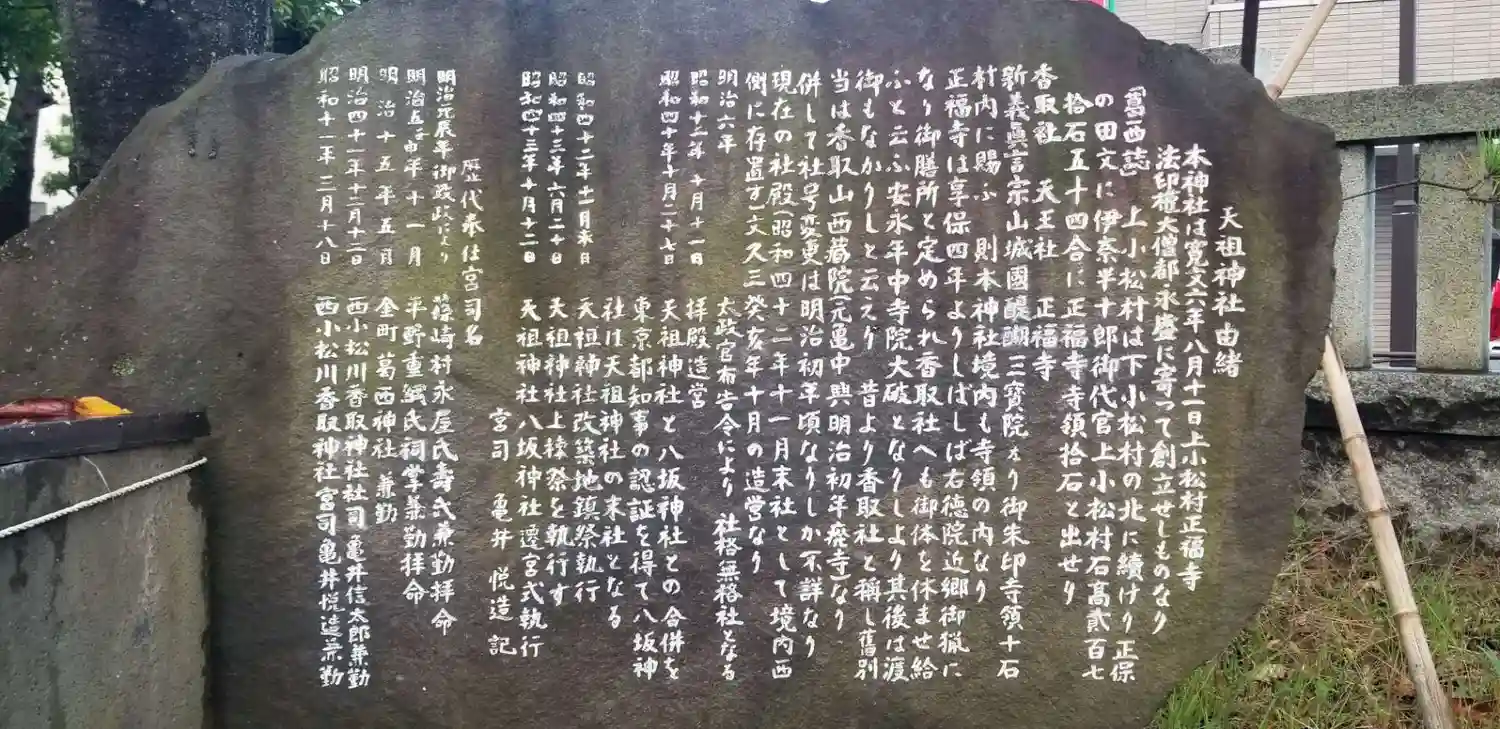 天祖神社由緒
本神社は寛文六年八月十一日上小松村正福寺
法印権大僧都永盛に寄つて創立せしものなり
『葛西誌』 上小松村は下小松村の北に續けり正保
の田文に伊奈半十郎御代官上小松村石高貳百七
拾石五十四合に正福寺寺領拾石と出せり
香取社 天王社 正福寺
新義真言宗山城國醍醐三寳院より御朱印寺領十石
村内に賜ふ 則本神社境内も寺領の内なり
正福寺は享保四年よりしばしば右德院近郷御猟に
なり御膳所と定められ香取社へも御体を休ませ給
ふと云ふ安永年中寺院大破となりしより其後は渡
御もなかりしと云えり 昔より香取社と稱し舊別
当は香取山西蔵院(元亀中興明治初年廃寺)なり
併して社号変更は明治初年頃なりしか不詳なり
現在の社殿(昭和四十二年十一月末社として境内西
側に存置す)文久三癸亥年十月の造営なり
明治六年 太政官布告令により 社格無格社となる
昭和十二年 十月十一日 拝殿造営
昭和四十年十月二十七日 天祖神社と八坂神社との合併を
東京都知事の認証を得て八坂神
社は天祖神社の末社となる
昭和四十二年十一月末日 天祖神社改築地鎮祭執行
昭和四十三年六月二十日 天祖神社上棟祭を執行す
昭和四十三年十月十二日 天祖神社八坂神社遷宮式執行
宮司 亀井 悦造 記
歴代奉仕宮司名
明治元辰年御改政により 篠崎村永屋氏壽氏兼勤拝命
明治五申年十一月 平野重 氏祠掌兼勤拝命
明治十五年五月 金町葛西神社 兼勤
明治四十一年十二月十二日 西小松川香取神社社司亀井信太郎兼勤
昭和十一年三月十八日 西小松川香取神社宮司亀井悦造兼勤